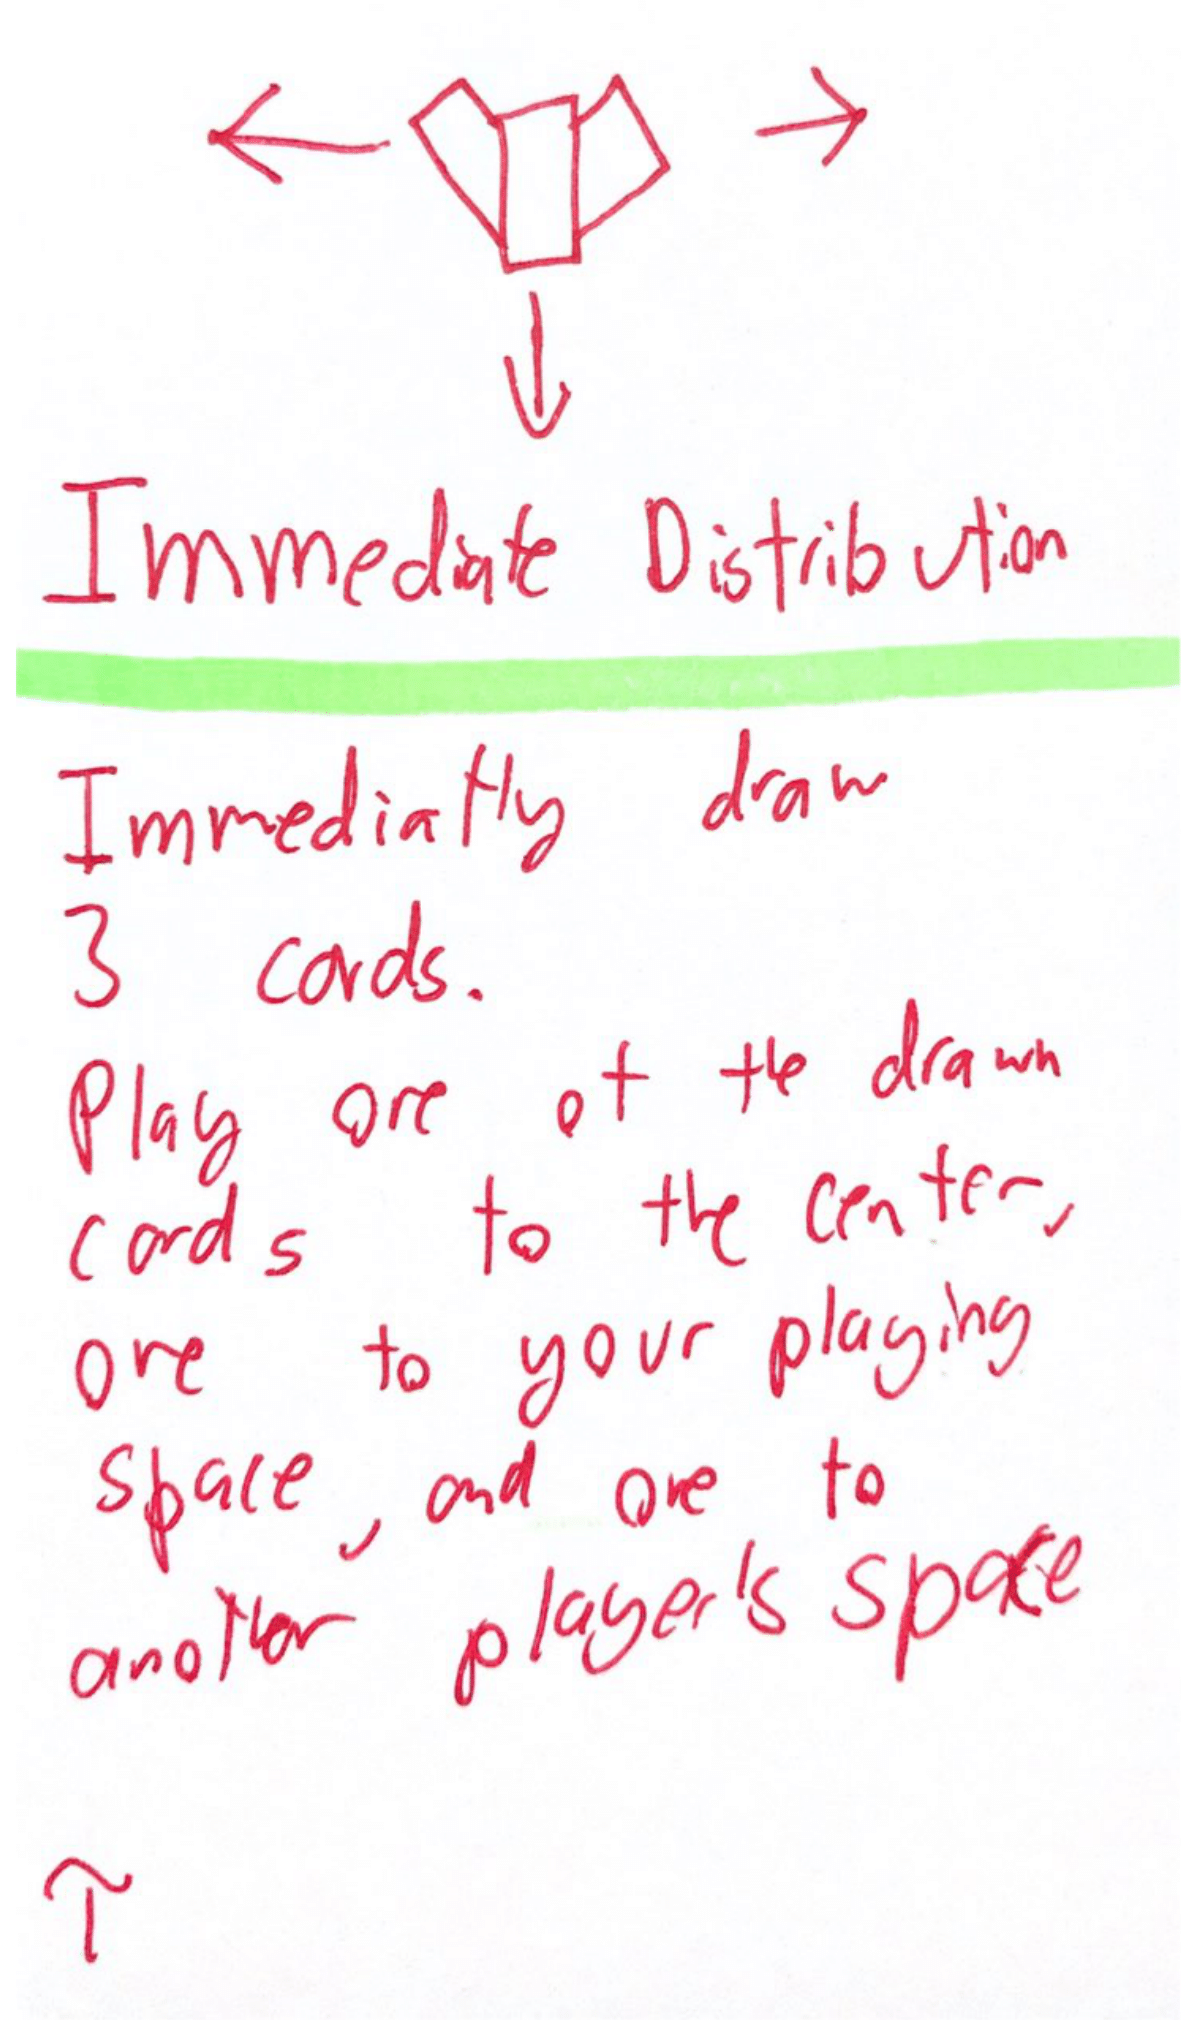 Immediate Distribution
Immediatly draw
3 cards.
Play one of the drawn
cards to the center,
one to your playing
space, and one to
another player's space